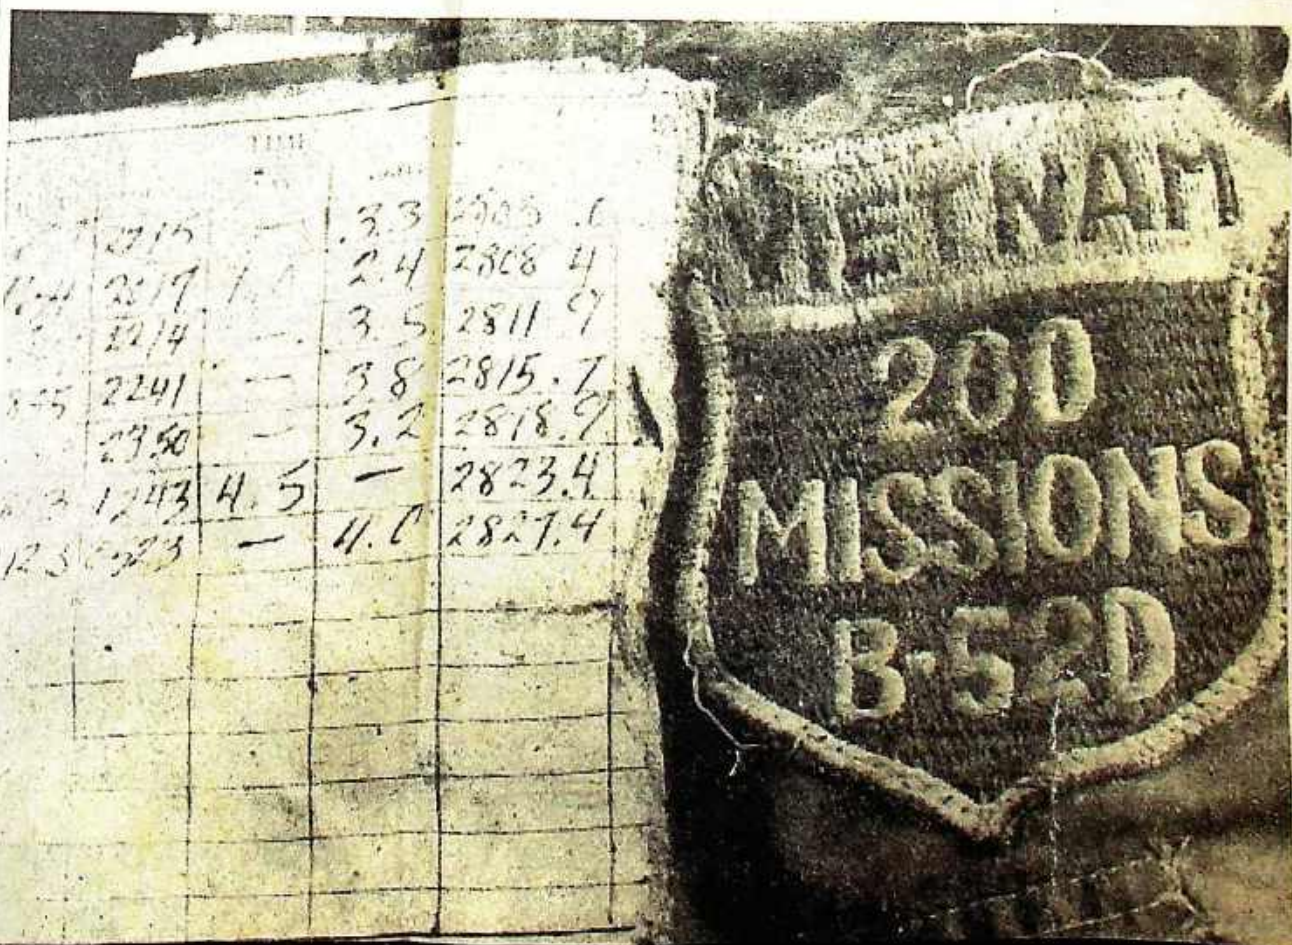 TIME
2215 — 3.3
2017 2.4 2808 4
2214 — 3.5 2811 .9
2241 — 3.8 2815.7
2350 — 3.2 2818.9
1243 4.5 — 2823.4
— 4.0 2827.4
VIETNAM
200
MISSIONS
B-52D